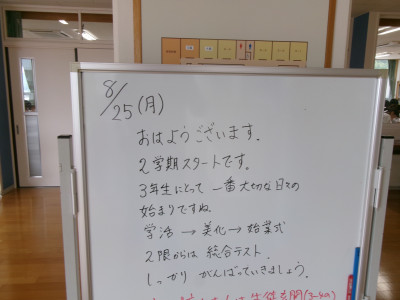 8/25(月)
おはようございます.
2学期スタートです。
3年生にとって 一番大切な日々の
始まりですね
学活 → 美化 → 始業式
2限からは 総合テスト.
しっかり がんばっていきましょう.